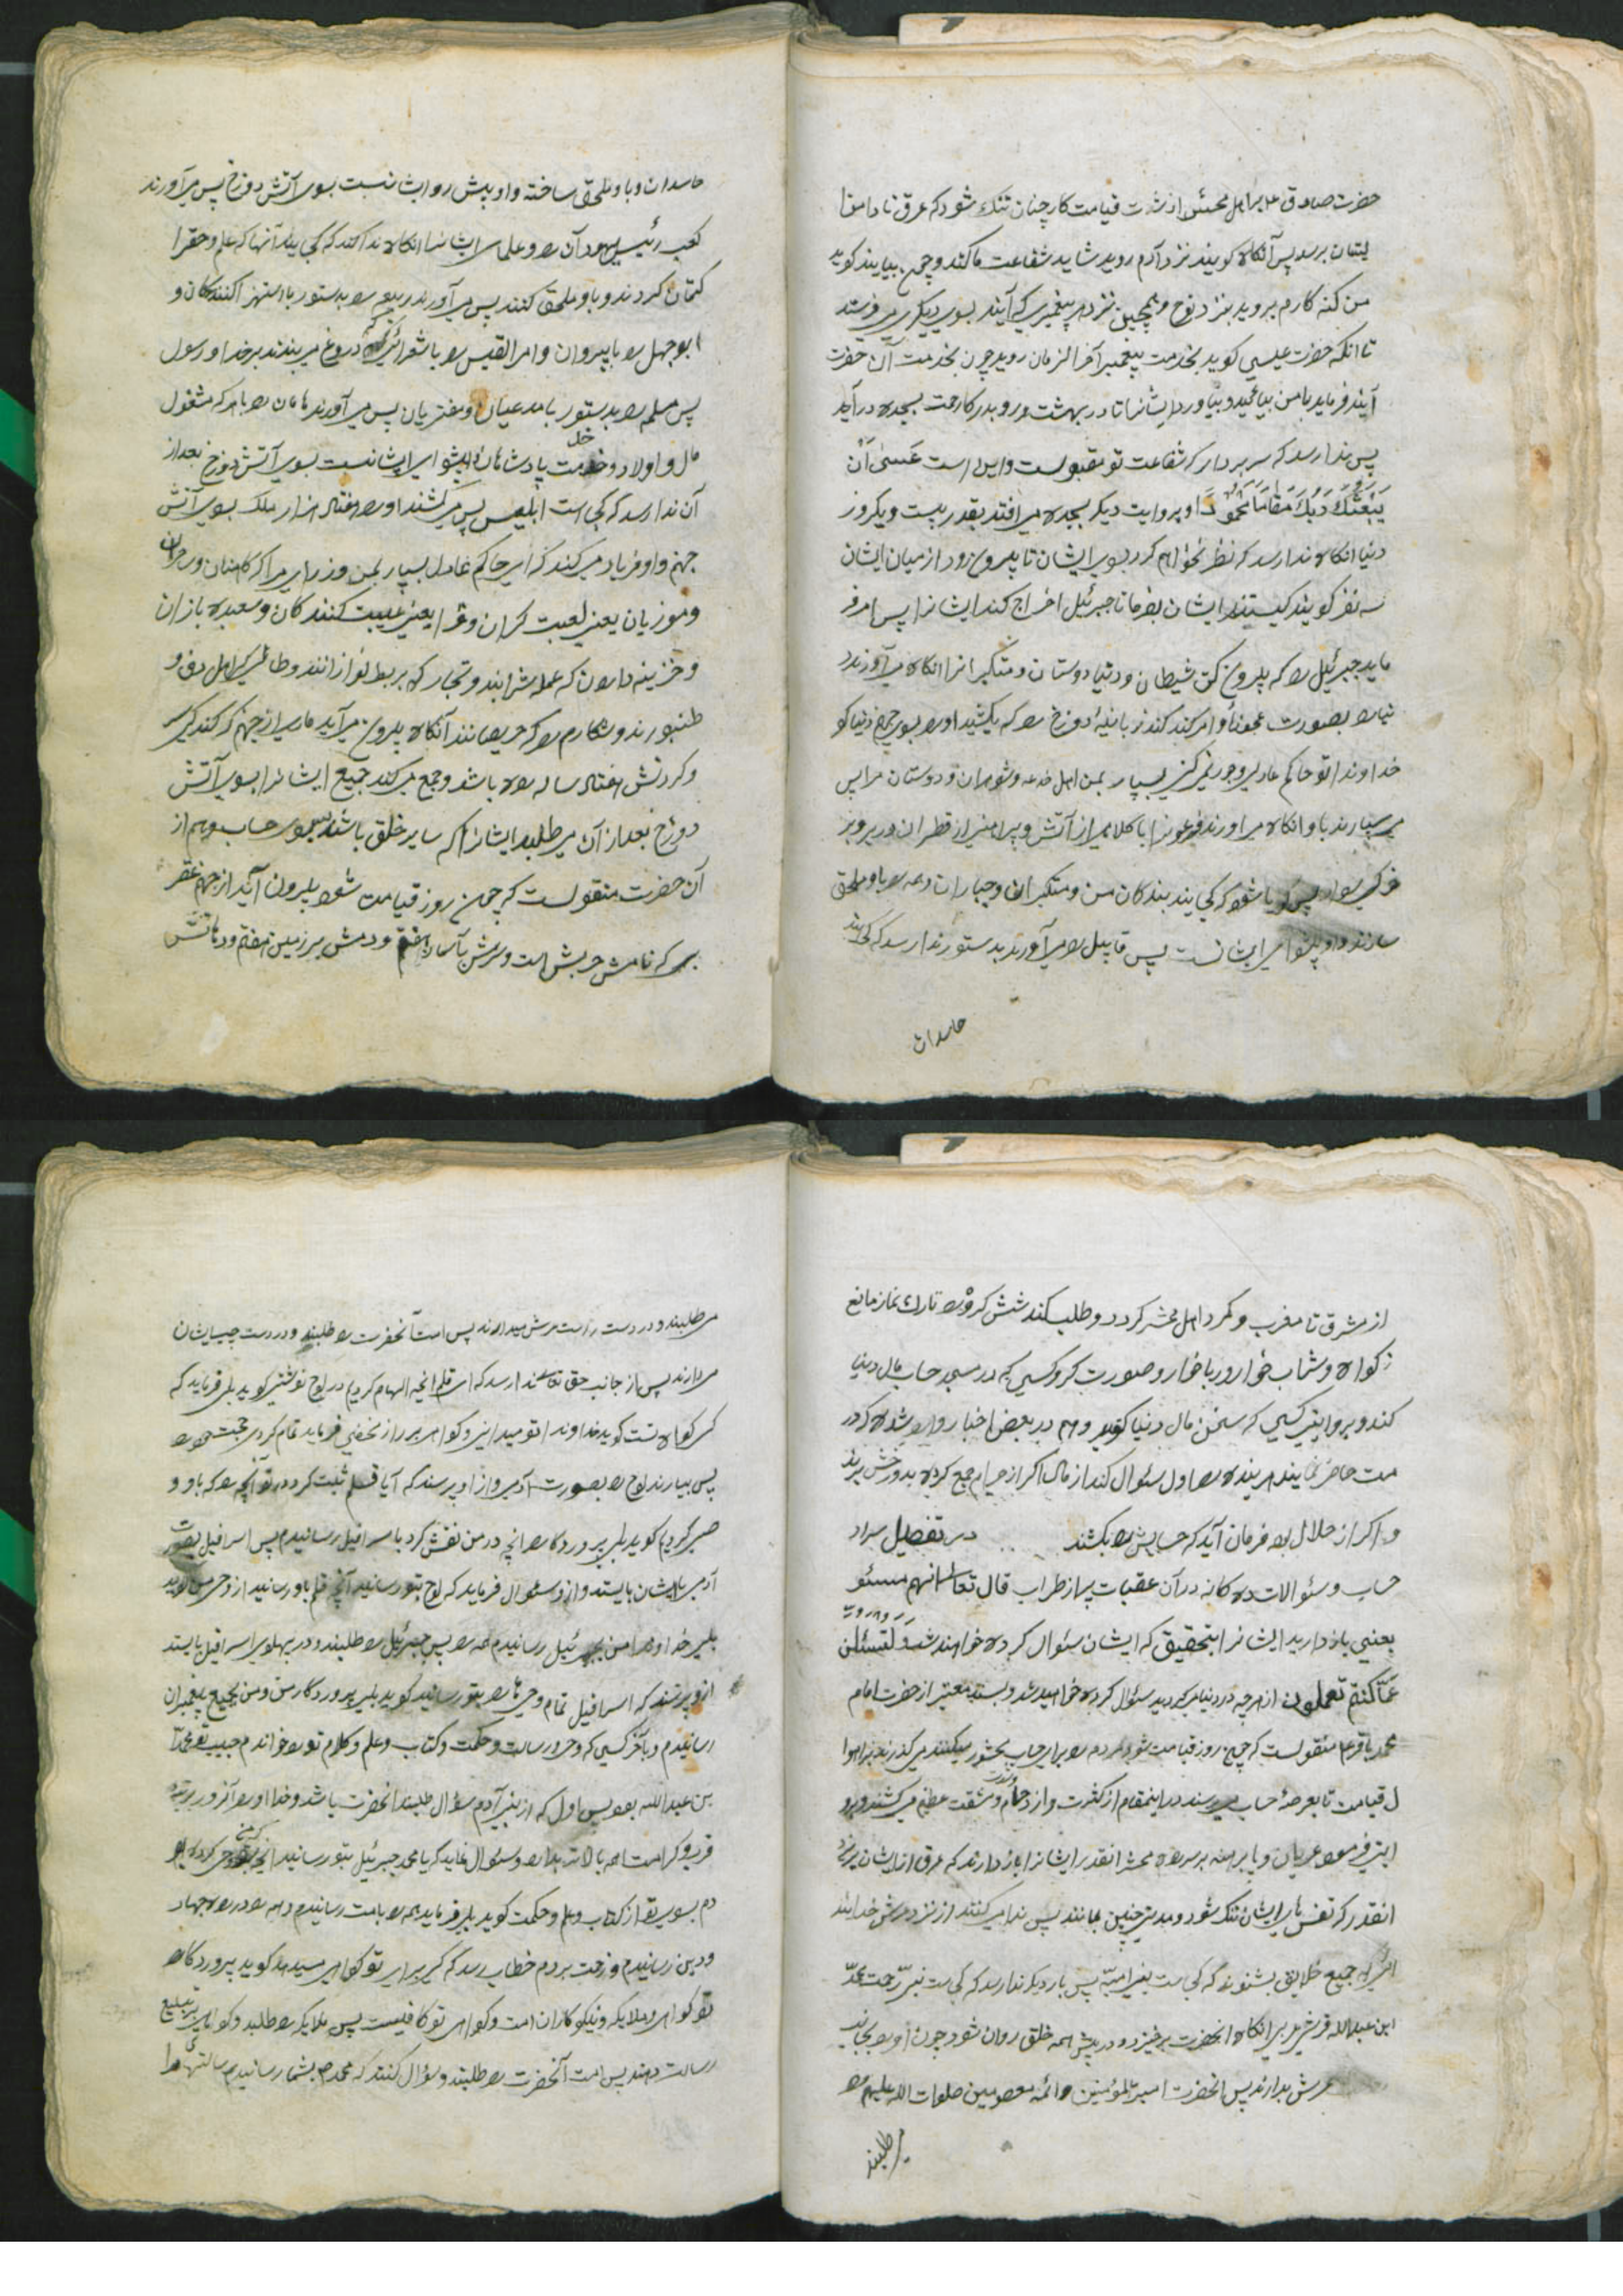 حضرت صادق ع بر اهل محشر از شدت قیامت کار چنان تنک شود که عرق تا دامنها
لبشان برسد پس آنکاه کویند نزد آدم روید شاید شفاعت ما کند و چون بیایند کوید
من کنه کارم بروید بنزد نوح و همچنین نزد هر پیغمبری که آیند بسوی دیکری میفرستد
تا انکه حضرت عیسی کوید بخدمت پیغمبر آخر الزمان روید چون بخدمت آن حضرت
آیند فرماید با من بیائید و بیاورد ایشانرا تا در بهشت و رو بدرکاه رحمت بسجده درآید
پس ندا رسد که سر بردار که شفاعت تو مقبولست و این است عَسیٰ اَنْ
یَبْعَثَکَ رَبُّکَ مَقَامَاً مَحْمُودَاً و بروایت دیکر بسجده می افتد بقدر بیست و یکروز
دنیا انکاه ندا رسد که نظر نخواهم کرد بسوی ایشان تا بیرون رود از میان ایشان
سه نفر کویند کیستند ایشان بفرما تا جبرئیل اخراج کند ایشانرا پس امر فر
ماید جبرئیل را که بیرون کن شیطان و دنیا دوستان و متکبرانرا انکاه می آورند د
نیا را بصورت عجوزه و امر کند کند زبانیهٔ دوزخ را که بکشید او را بسوی جهنم دنیا کو
خداوندا تو حاکم عادلی و جور نمیکنی بسپار بمن اهل خدعه و شوهران و دوستان مرا پس
می سپارند باو انکاه می اورند فرعونرا با کلاهی از آتش و پیراهنی از قطران در بر و بر
خوکی سوار پس کویا شود که کجایند بندکان من و متکبران و جباران و همه را باو ملحق
سازند و او پیشوای ایشانست پس قابیل را می آورند بدستور ندا رسد که کجایند
حاسدان
حاسدان و باو ملحق ساخته و او پیش رو ایشانست بسوی آتش دوزخ پس می آورند
کعب رئیس یهودان را و علمای ایشانرا انکاه ندا کند که کجایند آنها که علم و حقرا
کتمان کردند و باو ملحق کنند پس می آورند را بدستور با استهزا کنندکان و
ابوجهل را با پیروان و امرالقیس را با شعرائیکه دروغ می بندند بر خدا و رسول
پس مسیلمه را بدستور با مدعیان و مفتریان پس می آورند هامان را با هر که مشغول
مال و اولاد و خدمت پادشاهان و پیشوای ایشانست بسوی آتش دوزخ بعد از
آن ندا رسد که کجا است ابلیس پس میکشند او را هفتاد هزار ملک بسوی آتش
جهنم و او فریاد میکند که ای حاکم عادل بسپار بمن وزرای مرا که کاهنان و ساحران
و موزیان یعنی لعبت کران و غرا یعنی غیبت کنندکان و شعبده بازان
و خزینه داران که عمله شرابند و تجار که بربط نوازانند و اهل دف و
طنبورند و مکارم را که حریصانند آنکاه بیرون می آید ماری از جهنم که کندکی سر
و کردنش هفتاد ساله راه باشد و جمع میکند جمیع ایشانرا بسوی آتش
دوزخ بعد از آن می طلبد ایشانرا که سایر خلق باشند بسوی حساب و هم از
آن حضرت منقولست که چون روز قیامت شود بیرون آید از جهنم عقر
بی که نامش حریش است و سرش بآسمان هفتم و دمش بر زمین هفتم و دهانش
از مشرق تا مغرب و کرد اهل محشر کردد و طلب کند شش کروه را تارک نماز مانع
زکواة و شراب خوار و ربا خوار و صورت کر و کسی که در مسجد حساب مال دنیا
کند و بروایتی کسی که سخن مال دنیا کوید و هم در بعض اخبار وارد شده که در
مت حاضر نمایند هر بنده را اول سئوال کند از مال اکر از حرام جمع کرده بدوزخش برند
و اکر از حلال بود فرمان آید که حسابش را بکشند در تفصیل سراد
حساب و سئوالات ده کانه در آن عقبات پر از اضطراب قال تعالی انهم مسئو
یعنی باز دارید ایشانرا بتحقیق که ایشان سئوال کرده خواهند شد و لَتُسْئَلُنَّ
عَمّا کُنْتُمْ تَعْمَلُونَ از هر چه در دنیا میکردید سئوال کرده خواهید شد و بسند معتبر از حضرت امام
محمد باقر ع منقولست که چون روز قیامت شود مردم را برای حساب محشور میکنند میکذرند بر اهوا
ل قیامت تا بعرصهٔ حساب میرسند در اینمقام از کثرت و ازدحام و مشقت عظیم میکشند و برو
ایتی فرمود عریان و پا برهنه بر سر راه محشر انقدر ایشانرا باز دارند که عرق از ایشان بریزد
انقدر که نفس های ایشان تنک شود و مدتی چنین بمانند پس ندا میکنند از نزد عرش خدا بند
که جمیع خلایق بشنوند که کجاست پیغمبر امیّ پس بار دیکر ندا رسد که کجاست نبیّ رحمت محمّد
ابن عبدالله قرشی انکاه انحضرت برخیزد و در پیش همه خلق روان شود چون او را بجانب
عرش بدارند پس انحضرت امیرالمؤمنین و ائمه معصومین صلوات الله علیهم را
می طلبند
می طلبند و در دست راست عرش میدارند پس امت آنحضرت را طلبند و در دست چپ ایشان
میدارند پس از جانب حق تعالی ندا رسد که ای قلم انچه الهام کردیم در لوح نوشتی کوید بلی فرماید که
کی کواه تست کوید خداوندا تو میدانی و کواهی بر راز مخفی فرماید تمام کردی حجت خود را
پس بیارند لوح را بصورت آدمی و از او پرسند که آیا قلم ثبت کرد در تو آنچه را که باو و
حی کردیم کوید بلی پروردکارا انچه در من نقش کرد باسرافیل رسانیدم پس اسرافیل بصورت
آدمی با ایشان بایستد و از و سئوال فرماید که لوح بتو رسانید آنچه قلم باو رسانید از وحی من کوید
بلی خداوندا من بجبرئیل رسانیدم همه را پس جبرئیل را طلبند و در پهلوی اسرافیل بایستد
از و پرسند که اسرافیل تمام وحی ها را بتو رسانید کوید بلی پروردکار من و من بجمیع پیغمبران
رسانیدم و بآخر کسی که وحی و رسالت و حکمت و کتاب و علم و کلام تو را خواندم حبیب تو محمّد
بن عبدالله بود پس اول که از بنی آدم سؤال طلبند انحضرت باشد و خدا او را آنروز برتبه
قرب و کرامت همه بالاتر بدارد و سئوال نماید که یا محمد جبرئیل بتو رسانید انچه وحی کرده بو
دم بسوی تو از کتاب و علم و حکمت کوید بلی فرماید همه را بامت رسانیدم و همه را در راه جهاد
و دین رسانیدم و زحمت بردم خطاب رسد که کی برای تو کواهی میدهد کوید پروردکارا
تو کواهی و ملایکه و نیکوکاران امت و کواهی تو کافیست پس ملایکه را طلبد و کواهی بر تبلیغ
رسالت دهند پس امت آنحضرت را طلبند و سؤال کنند که محمد ص بشما رسانیدم رسالتهای مرا